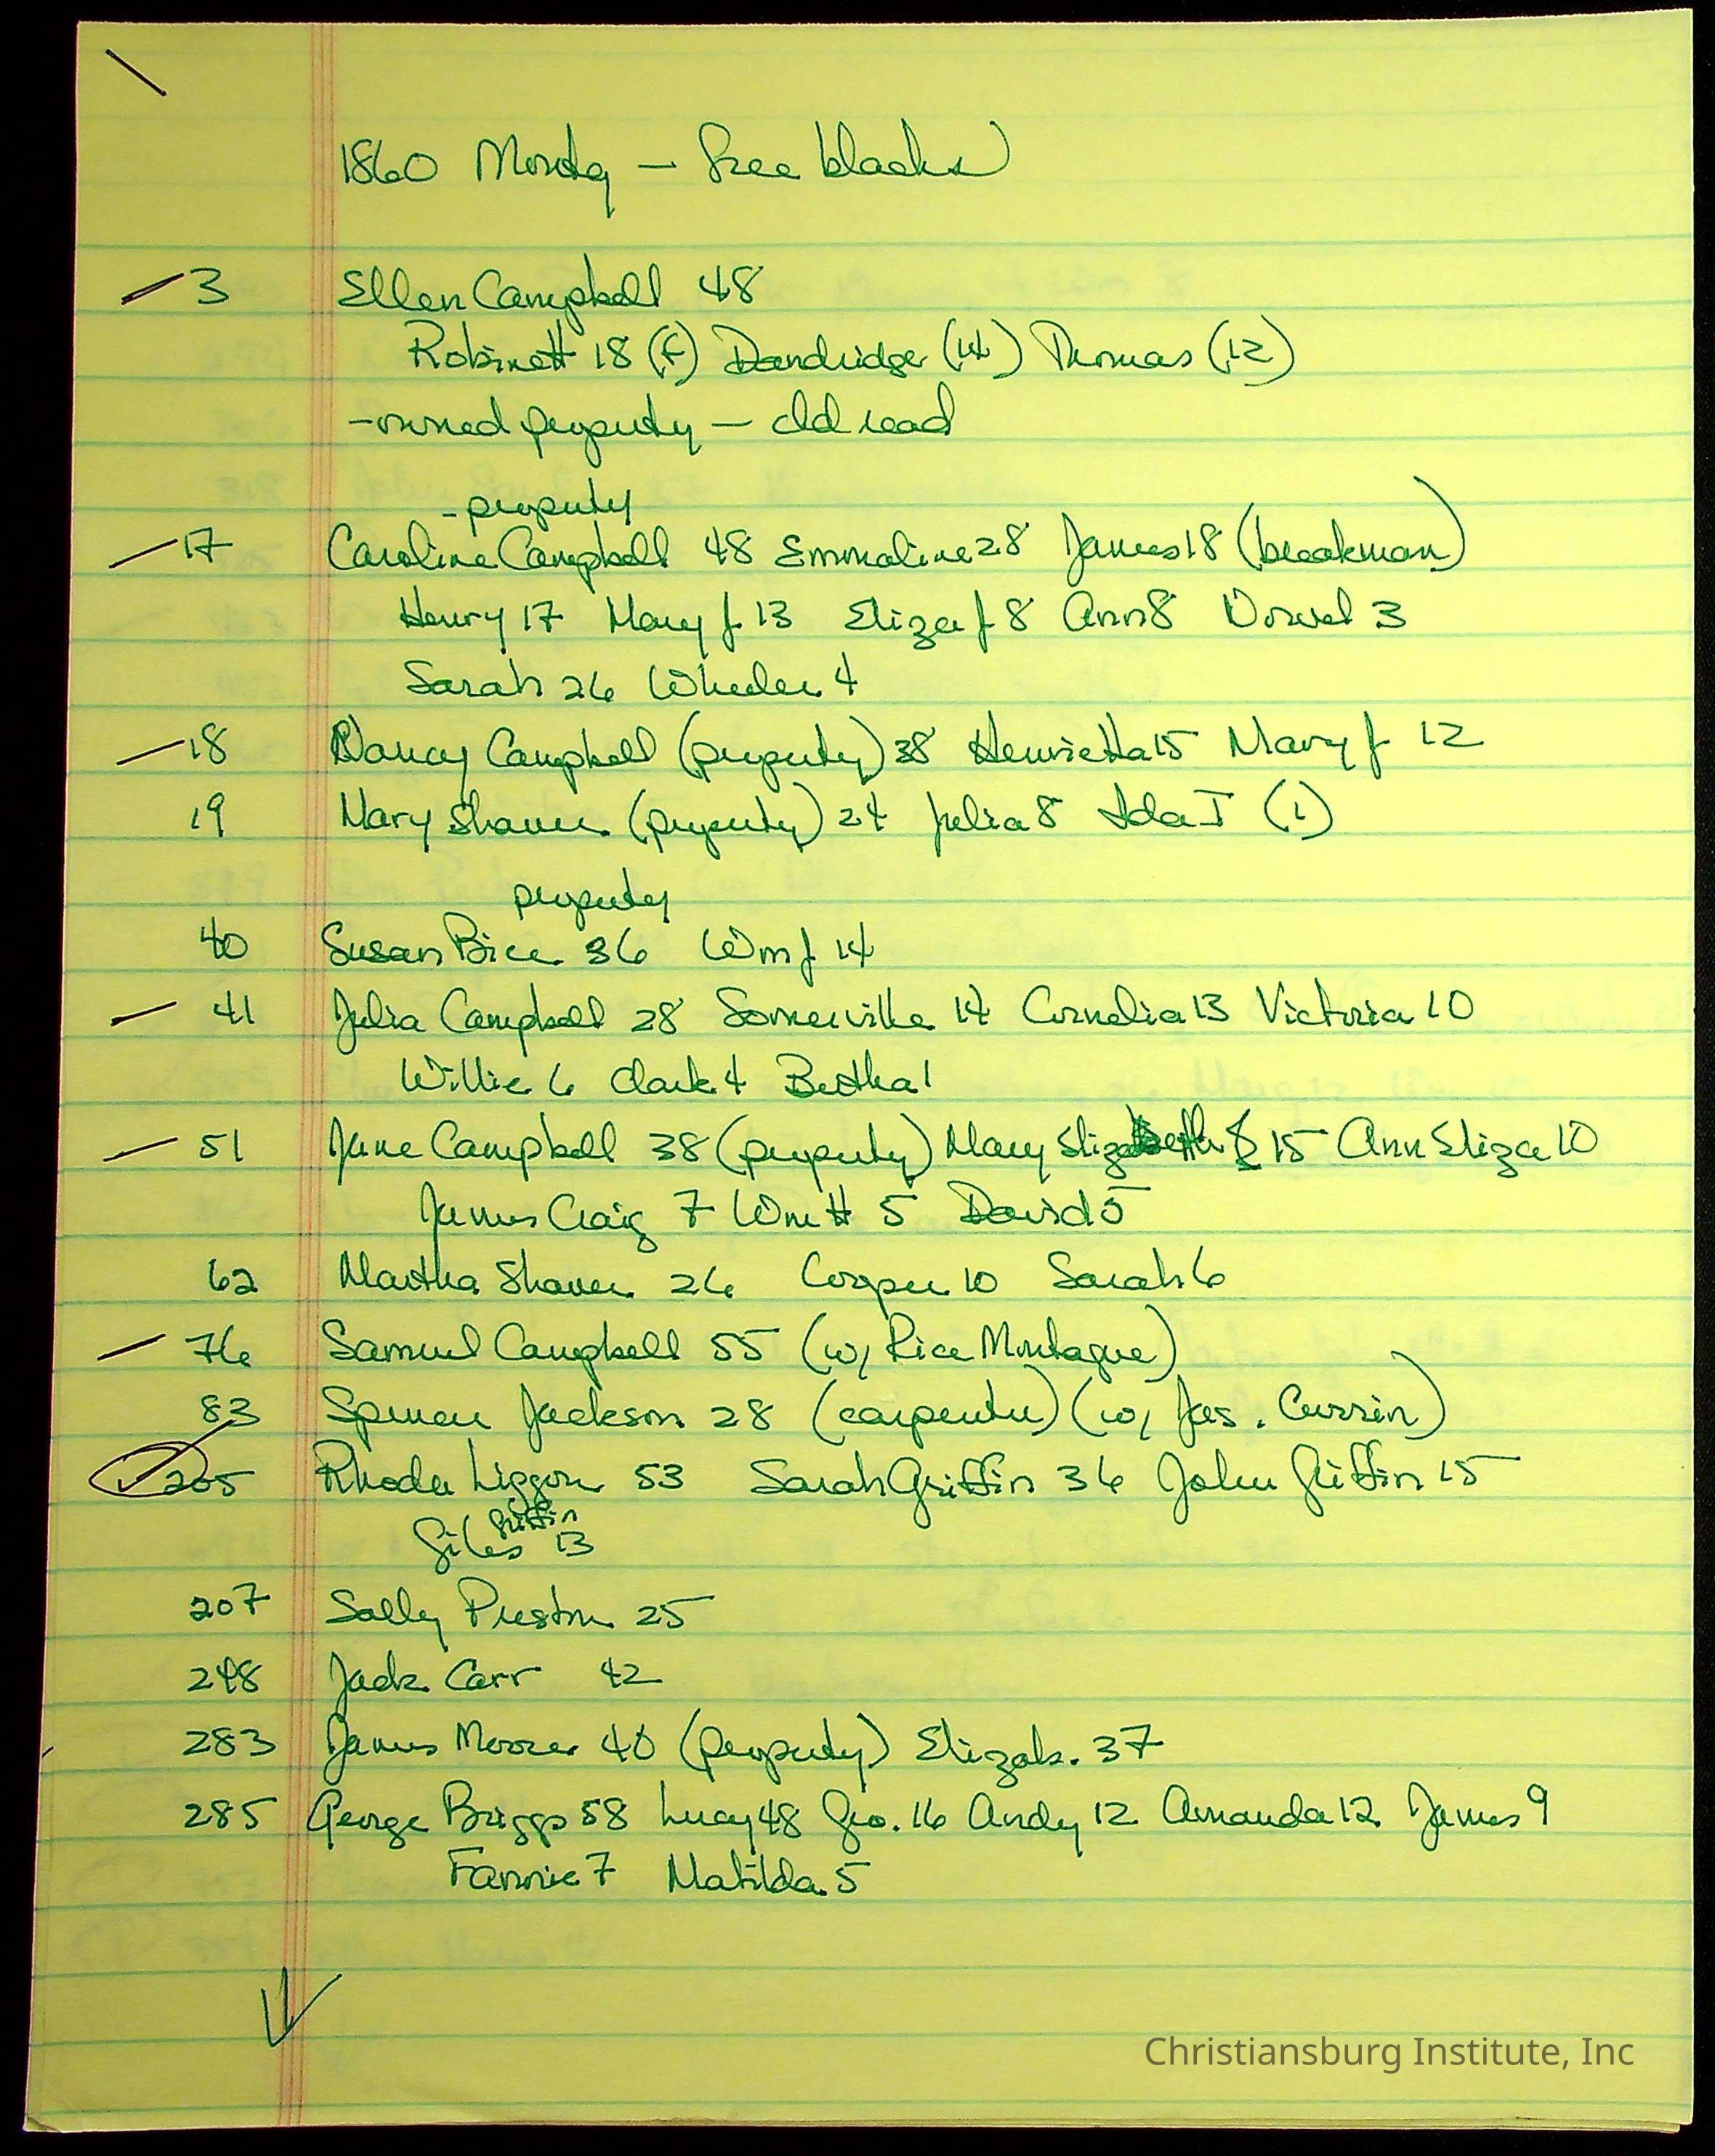 1860 Montg — free blacks
3 Ellen Campbell 48
Robinett 18 (f) Dandridge (14) Thomas (12)
- owned property — old road
- property
17 Caroline Campbell 48 Emmaline 28 James 18 (breakman)
Henry 17 Mary J 13 Eliza J 8 Ann 8 3
Sarah 26 Wheeler 4
18 Nancy Campbell (property) 38 Henrietta 15 Mary J 12
19 Mary Shaver (property) 24 Julia 8 Ida I (1)
property
40 Susan Bice 36 Wm J 14
41 Julia Campbell 28 Somerville 14 Cornelia 13 Victoria 10
Willie 6 Clark 4 Bertha 1
51 Jane Campbell 38 (property) Mary Elizabeth 15 Ann Eliza 10
James Craig 7 Wm H 5 David 5
62 Martha Shaver 26 Cooper 10 Sarah 6
76 Samuel Campbell 55 (w/ Rice Montague)
83 Spencer Jackson 28 (carpenter) (w/ Jas. Currin)
205 Rhoda Liggon 53 Sarah Griffin 36 John Griffin 15
Griffin
Giles 13
207 Sally Preston 25
248 Jack Carr 42
283 James Moore 40 (property) Elizab. 37
285 George Briggs 58 Lucy 48 Geo. 16 Andy 12 Amanda 12 James 9
Fannie 7 Matilda 5
Christiansburg Institute, Inc